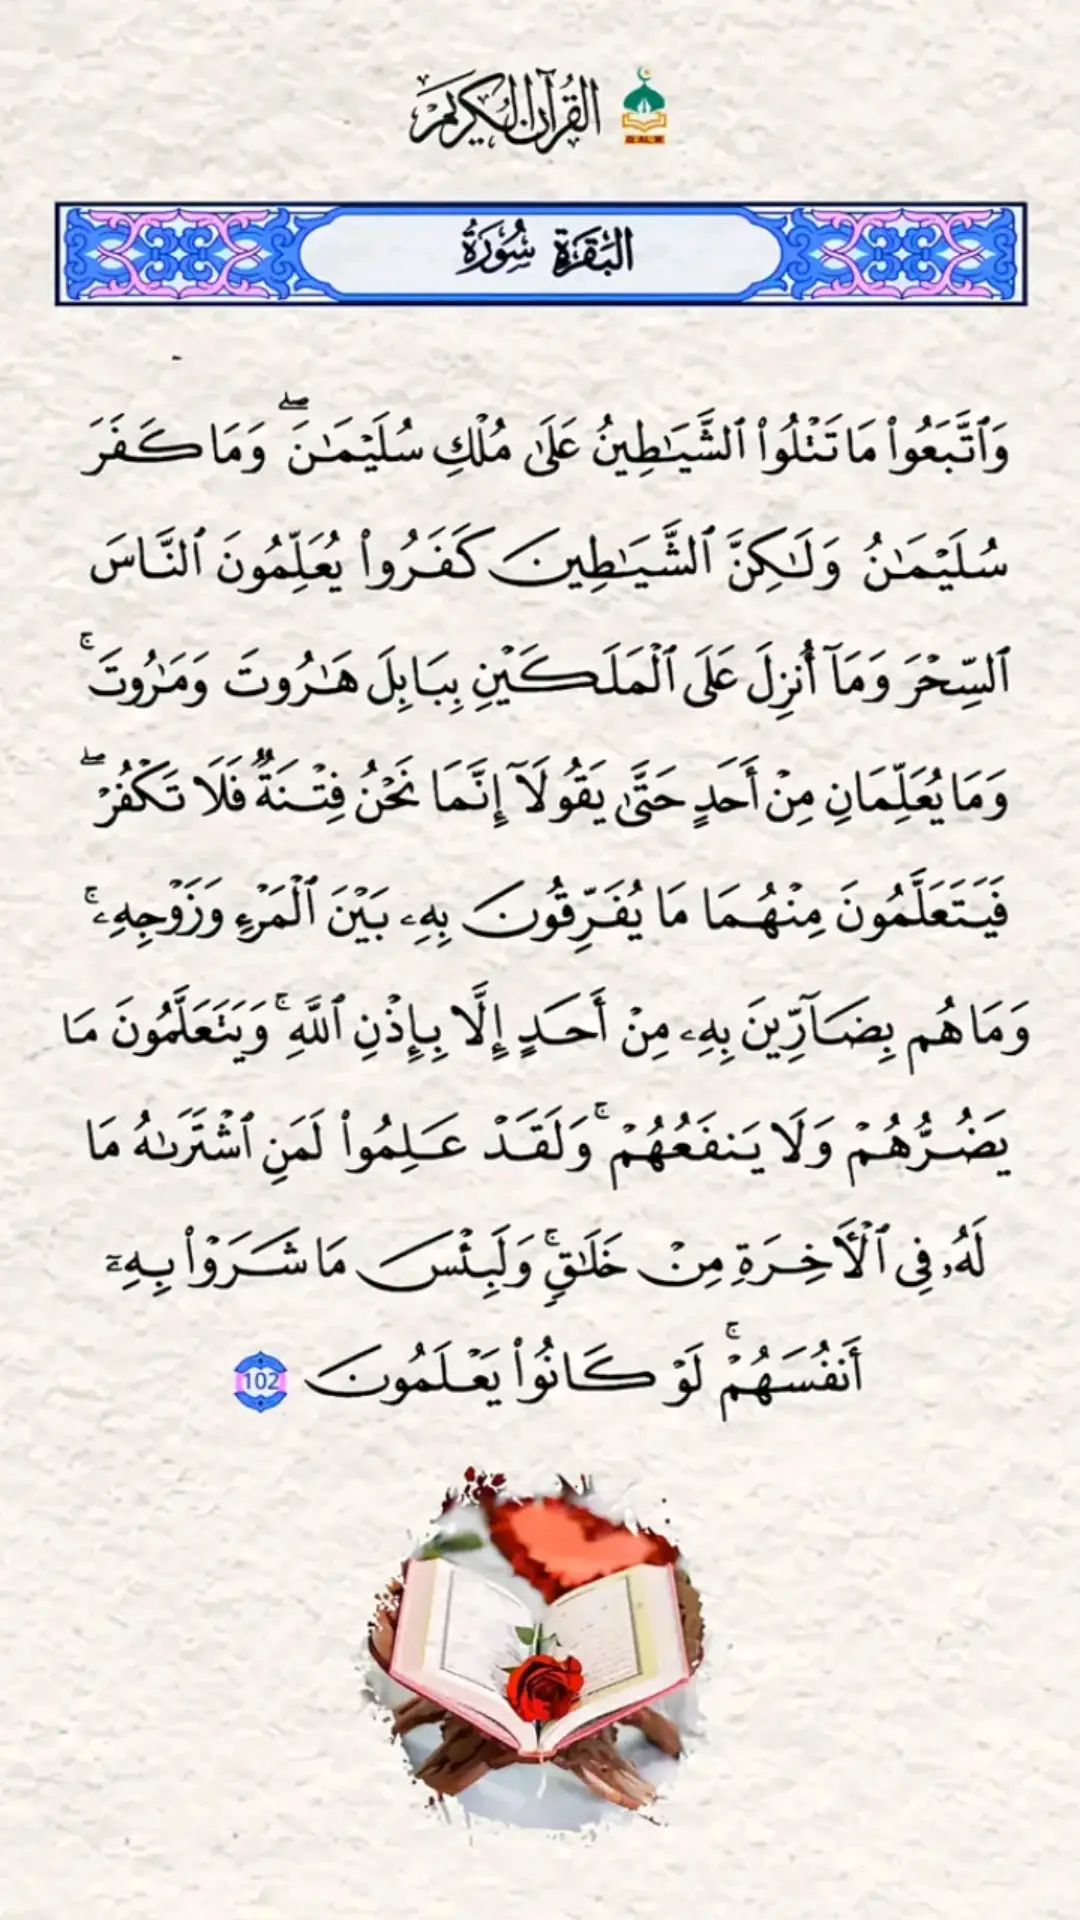 القرآن الكريم
QALB
البَقَرَةِ سُورَةُ
وَٱتَّبَعُوا۟ مَا تَتْلُوا۟ ٱلشَّيَـٰطِينُ عَلَىٰ مُلْكِ سُلَيْمَـٰنَ ۖ وَمَا كَفَرَ
سُلَيْمَـٰنُ وَلَـٰكِنَّ ٱلشَّيَـٰطِينَ كَفَرُوا۟ يُعَلِّمُونَ ٱلنَّاسَ
ٱلسِّحْرَ وَمَآ أُنزِلَ عَلَى ٱلْمَلَكَيْنِ بِبَابِلَ هَـٰرُوتَ وَمَـٰرُوتَ ۚ
وَمَا يُعَلِّمَانِ مِنْ أَحَدٍ حَتَّىٰ يَقُولَآ إِنَّمَا نَحْنُ فِتْنَةٌ فَلَا تَكْفُرْ ۖ
فَيَتَعَلَّمُونَ مِنْهُمَا مَا يُفَرِّقُونَ بِهِۦ بَيْنَ ٱلْمَرْءِ وَزَوْجِهِۦ ۚ
وَمَا هُم بِضَآرِّينَ بِهِۦ مِنْ أَحَدٍ إِلَّا بِإِذْنِ ٱللَّهِ ۚ وَيَتَعَلَّمُونَ مَا
يَضُرُّهُمْ وَلَا يَنفَعُهُمْ ۚ وَلَقَدْ عَلِمُوا۟ لَمَنِ ٱشْتَرَىٰهُ مَا
لَهُۥ فِى ٱلْـَٔاخِرَةِ مِنْ خَلَـٰقٍ ۚ وَلَبِئْسَ مَا شَرَوْا۟ بِهِۦٓ
أَنفُسَهُمْ ۚ لَوْ كَانُوا۟ يَعْلَمُونَ 102